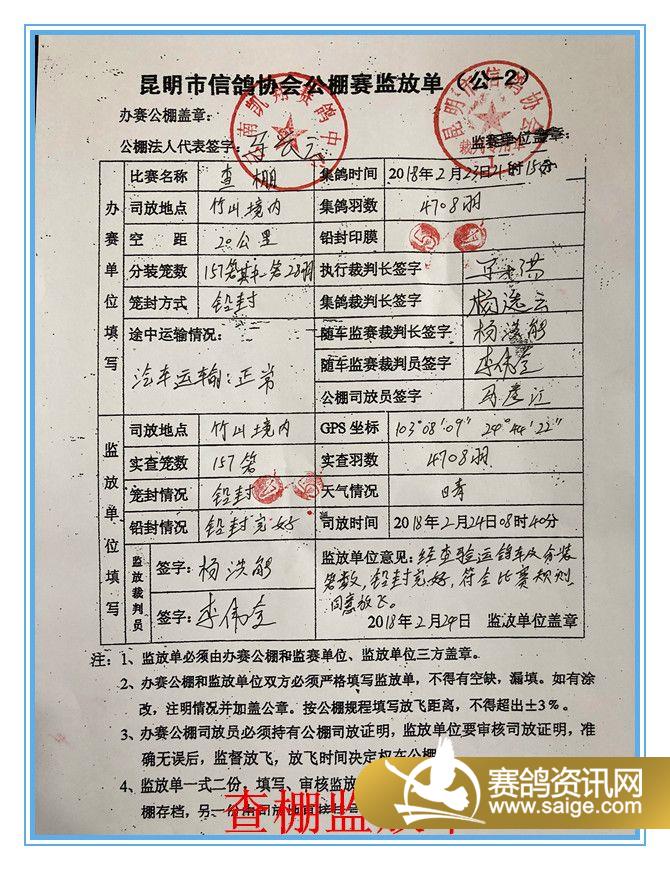 昆明市信鸽协会公棚赛监放单（公-2）
办赛公棚盖章：
公棚法人代表签字：
监赛单位盖章：
办赛单位填写
比赛名称 查棚 集鸽时间 2018年2月23日21时15分
司放地点 竹山境内 集鸽羽数 4708羽
空距 20公里 铅封印膜
分装笼数 157笼 执行裁判长签字
笼封方式 铅封 集鸽裁判长签字 杨逸云
途中运输情况： 随车监赛裁判长签字 杨洪能
汽车运输：正常 随车监赛裁判员签字 李伟
公棚司放员签字
监放单位填写
司放地点 竹山境内 GPS坐标 103°08'09" 24°44'22"
实查笼数 157笼 实查羽数 4708羽
笼封情况 铅封 天气情况 晴
铅封情况 铅封完好 司放时间 2018年2月24日08时40分
监放裁判员 签字：杨洪能 监放单位意见：经查验运鸽车及分装
笼数，铅封完好，符合比赛规则，
同意放飞。
签字：李伟
2018年2月24日 监放单位盖章
注：1、监放单必须由办赛公棚和监赛单位、监放单位三方盖章。
2、办赛公棚和监放单位双方必须严格填写监放单，不得有空缺，漏填。如有涂
改，注明情况并加盖公章。按公棚规程填写放飞距离，不得超出±3%。
3、办赛公棚司放员必须持有公棚司放证明，监放单位要审核司放证明，准
确无误后，监督放飞，放飞时间决定权在公棚
4、监放单一式二份，填写、审核监放
棚存档，另一份
查棚监放单
赛鸽资讯网
www.saige.com